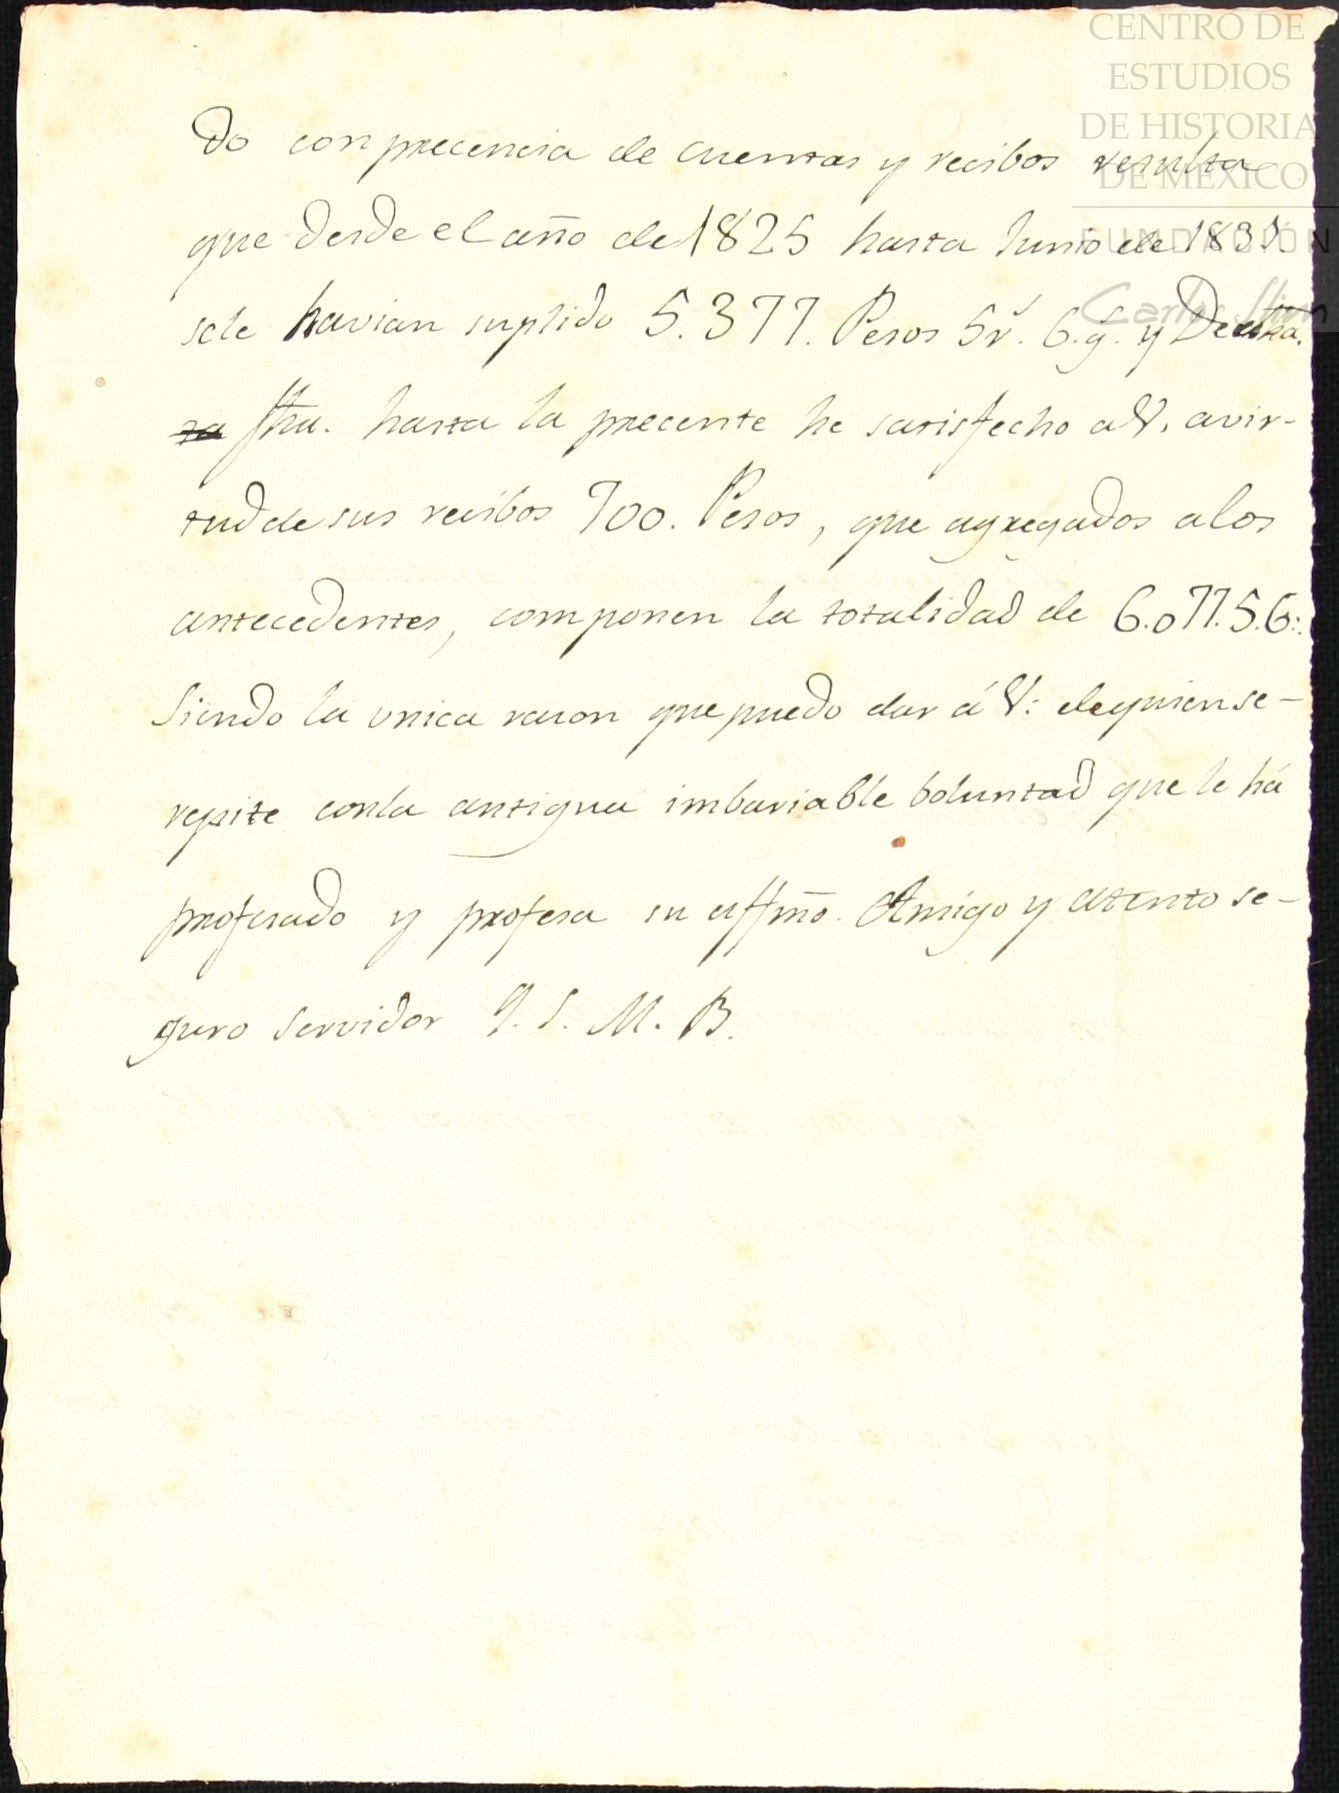 CENTRO DE
ESTUDIOS
DE HISTORIA
DE MÉXICO
FUNDACIÓN
Carlos Slim
do con precencia de cuentas y recibos resulta
que desde el año de 1825 hasta Junio de 1831.
sele havian suplido 5.377. Pesos 5r͂. 6.g͂. y De
fha. hasta la precente he satisfecho a V. avir-
tud de sus recibos 700. Pesos, que agregados a los
antecedentes, componen la totalidad de 6.077.5.6:.
Siendo la unica rason que puedo dar á V: dequiense-
repite conla antigua imbariable boluntad que le há
profesado y profesa su affm̃o. Amigo y atento se-
guro servidor Q. S. M. B.